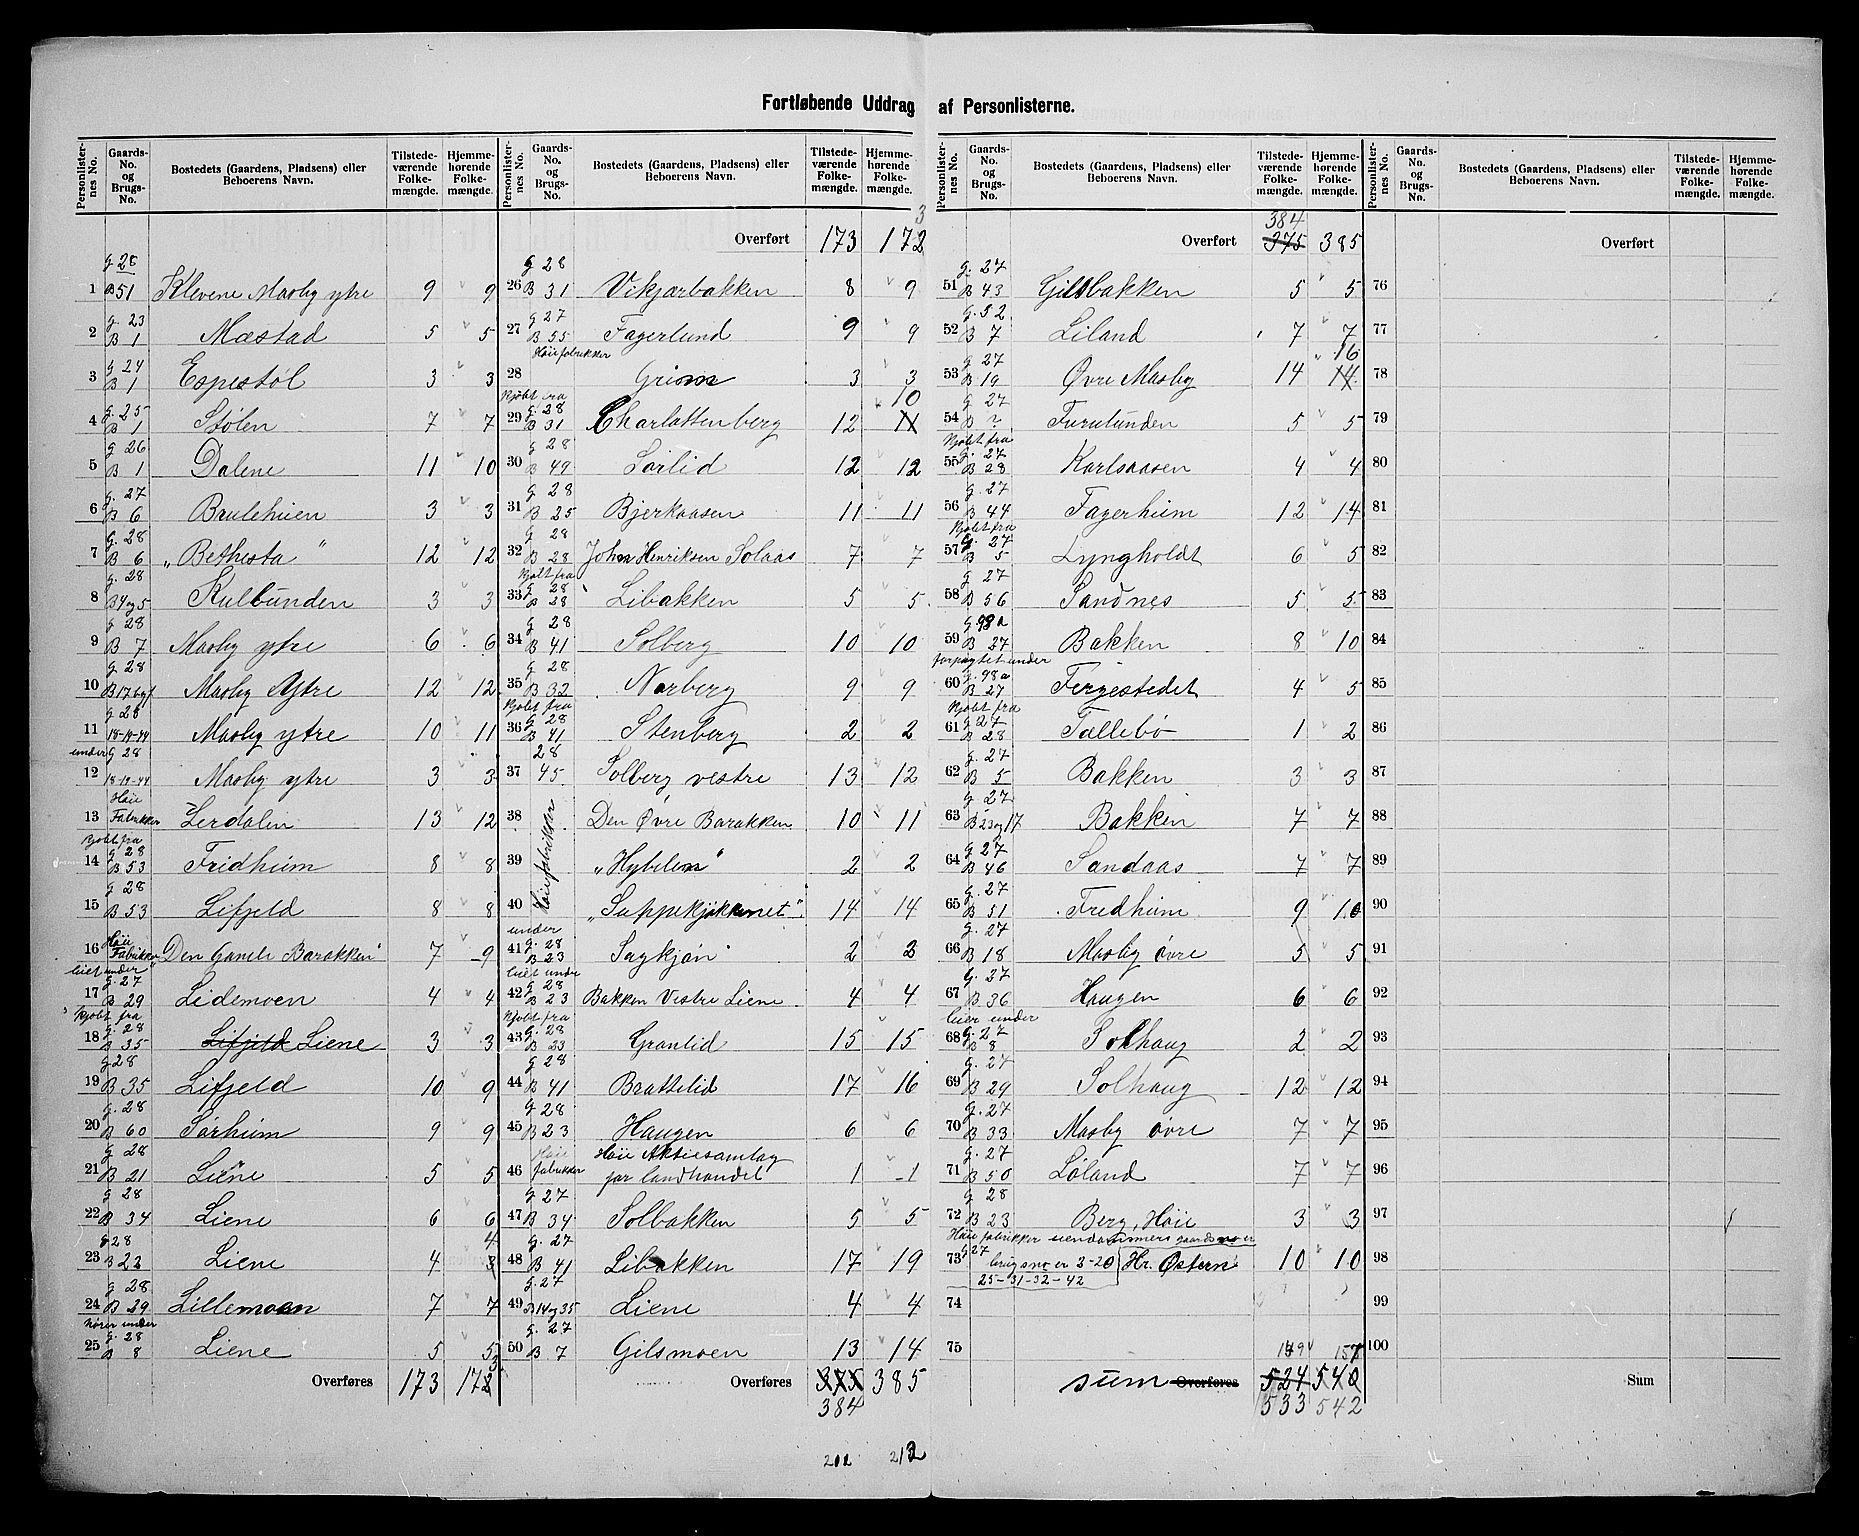 Fortløbende Uddrag af Personlisterne.
Personlisternes No. | Gaards-No. og Brugs-No. | Bostedets (Gaardens, Pladsens) eller Beboerens Navn. | Tilstedeværende Folkemængde. | Hjemmehørende Folkemængde.
g 28
1 B 51 Klevene Mosby ytre 9 9
g. 23
2 B 1 Mæstad 5 5
g 24
3 B 1 Espestøl 3 3
g. 25
4 B 1 Stølen 7 7
g 26
5 B 1 Dalene 11 10
g. 27
6 B 6 Brulehuen 3 3
g. 28
7 B 6 „Bethesta" 12 12
g. 28
8 B 4 og 5 Kulbunden 3 3
g 28
9 B 7 Mosby ytre 6 6
g 28
10 Mosby Ytre 12 12
g 28
11 18-19-44 Mosby ytre 10 11
under g 28
12 18-19-44 Mosby ytre 3 3
Høie
13 Fabrikker Lerdalen 13 12
Kjøbt fra
g 28
14 B 53 Fridheim 8 8
g 28
15 B 53 Lifjeld 8 8
Høie
16 Fabrikker „Den Gamle Barakken" 7 9
leiet under
g. 27
17 B 29 Lidemoen 4 4
Kjøbt fra
g. 28
18 B 35 Lifjeld Liene 3 3
g 28
19 B 35 Lifjeld 10 9
g. 28
20 B 60 Sørheim 9 9
g 28
21 B 21 Liene 5 5
g 28
22 B 34 Liene 6 6
g 28 4
23 B 22 Liene 4 3
g 28
24 B 29 Lillemoen 7 7
hører under
g. 28
25 B 8 Liene 5 5
3
Overføres 173 172
3
Overført 173 172
g 28
26 B 31 Vikjærbakken 8 9
g 27
27 B 55 Fagerlund 9 9
Høie fabrikker
28 Grim 3 3
Kjøbt fra 10
g. 28
29 B 31 Charlattenberg 12 11
g 28
30 B 49 Sørlid 12 12
g 28
31 B 25 Bjerkaasen 11 11
g 28
32 B 28 John Henriksen Solaas 7 7
Kjøbt fra
g 28
33 B 28 Libakken 5 5
g 28
34 B 41 Solberg 10 10
g 28
35 B 32 Norberg 9 9
Kjøbt fra
g 28
36 B 41 Stenberg 2 2
28
37 45 Solberg vestre 13 12
Høie fabrikker
38 Den Øvre Barakken 10 11
39 „Hybelen" 2 2
40 „Suppekjøkkenet" 14 14
under
g. 28
41 B 23 Sagkjøn 2 2
leiet under
g. 28
42 B 23 Bakken Vestre Liene 4 4
Kjøbt fra
g. 28
43 B 23 Granlid 15 15
g 28
44 B 41 Brattelid 17 16
g. 28
45 B 23 Haugen 6 6
Høie Høie Aktiesamlag
46 fabrikker for landhandel 1 1
g 27
47 B 34 Solbakken 5 5
g. 27
48 B 41 Libakken 17 19
g. 27
49 B 14 og 35 Liene 4 4
g. 27
50 B 7 Gilsmoen 13 14
Overføres 375 385
384
384
Overført 375 385
g. 27
51 B 43 Gilsbakken 5 5
g. 52
52 B 7 Liland 7 7
g 27 16
53 B 19 Øvre Mosby 14 14
g 27
54 B ? Furulunden 5 5
Kjøbt fra
g. 27
55 B 28 Karlsaasen 4 4
g. 27
56 B 44 Fagerheim 12 14
Kjøbt fra
g. 27
57 B 5 Lyngholdt 6 5
g 27
58 B 56 Sandnes 5 5
g 98 a
59 B 27 Bakken 8 10
forpagtet under
g. 98 a
60 B 27 Fergestedet 4 5
Kjøbt fra
g 27
61 B 28 Tallebø 1 2
g. 27
62 B 5 Bakken 3 3
g 27
63 B 23 og 17 Bakken 7 7
g 27
64 B 46 Sandaas 7 7
g. 27
65 B 51 Fredheim 9 10
g. 27
66 B 18 Mosby øvre 5 5
g. 27
67 B 36 Haugen 6 6
leier under
g. 27
68 B 8 Solhaug 2 2
g. 27
69 B 29 Solhaug 12 12
g. 27
70 B 33 Mosby øvre 7 7
g. 27
71 B 50 Løland 7 7
g 28
72 B 23 Berg, Høie 3 3
Høie fabrikker eiendommers gaardsno er
73 g 27 brugsno er 3-20 Hr. Østern 10 10
25-31-32-42
74
75 149 157
sum Overføres 524 540
533 542
Overført
76
77
78
79
80
81
82
83
84
85
86
87
88
89
90
91
92
93
94
95
96
97
98
99
100
Sum
202 212